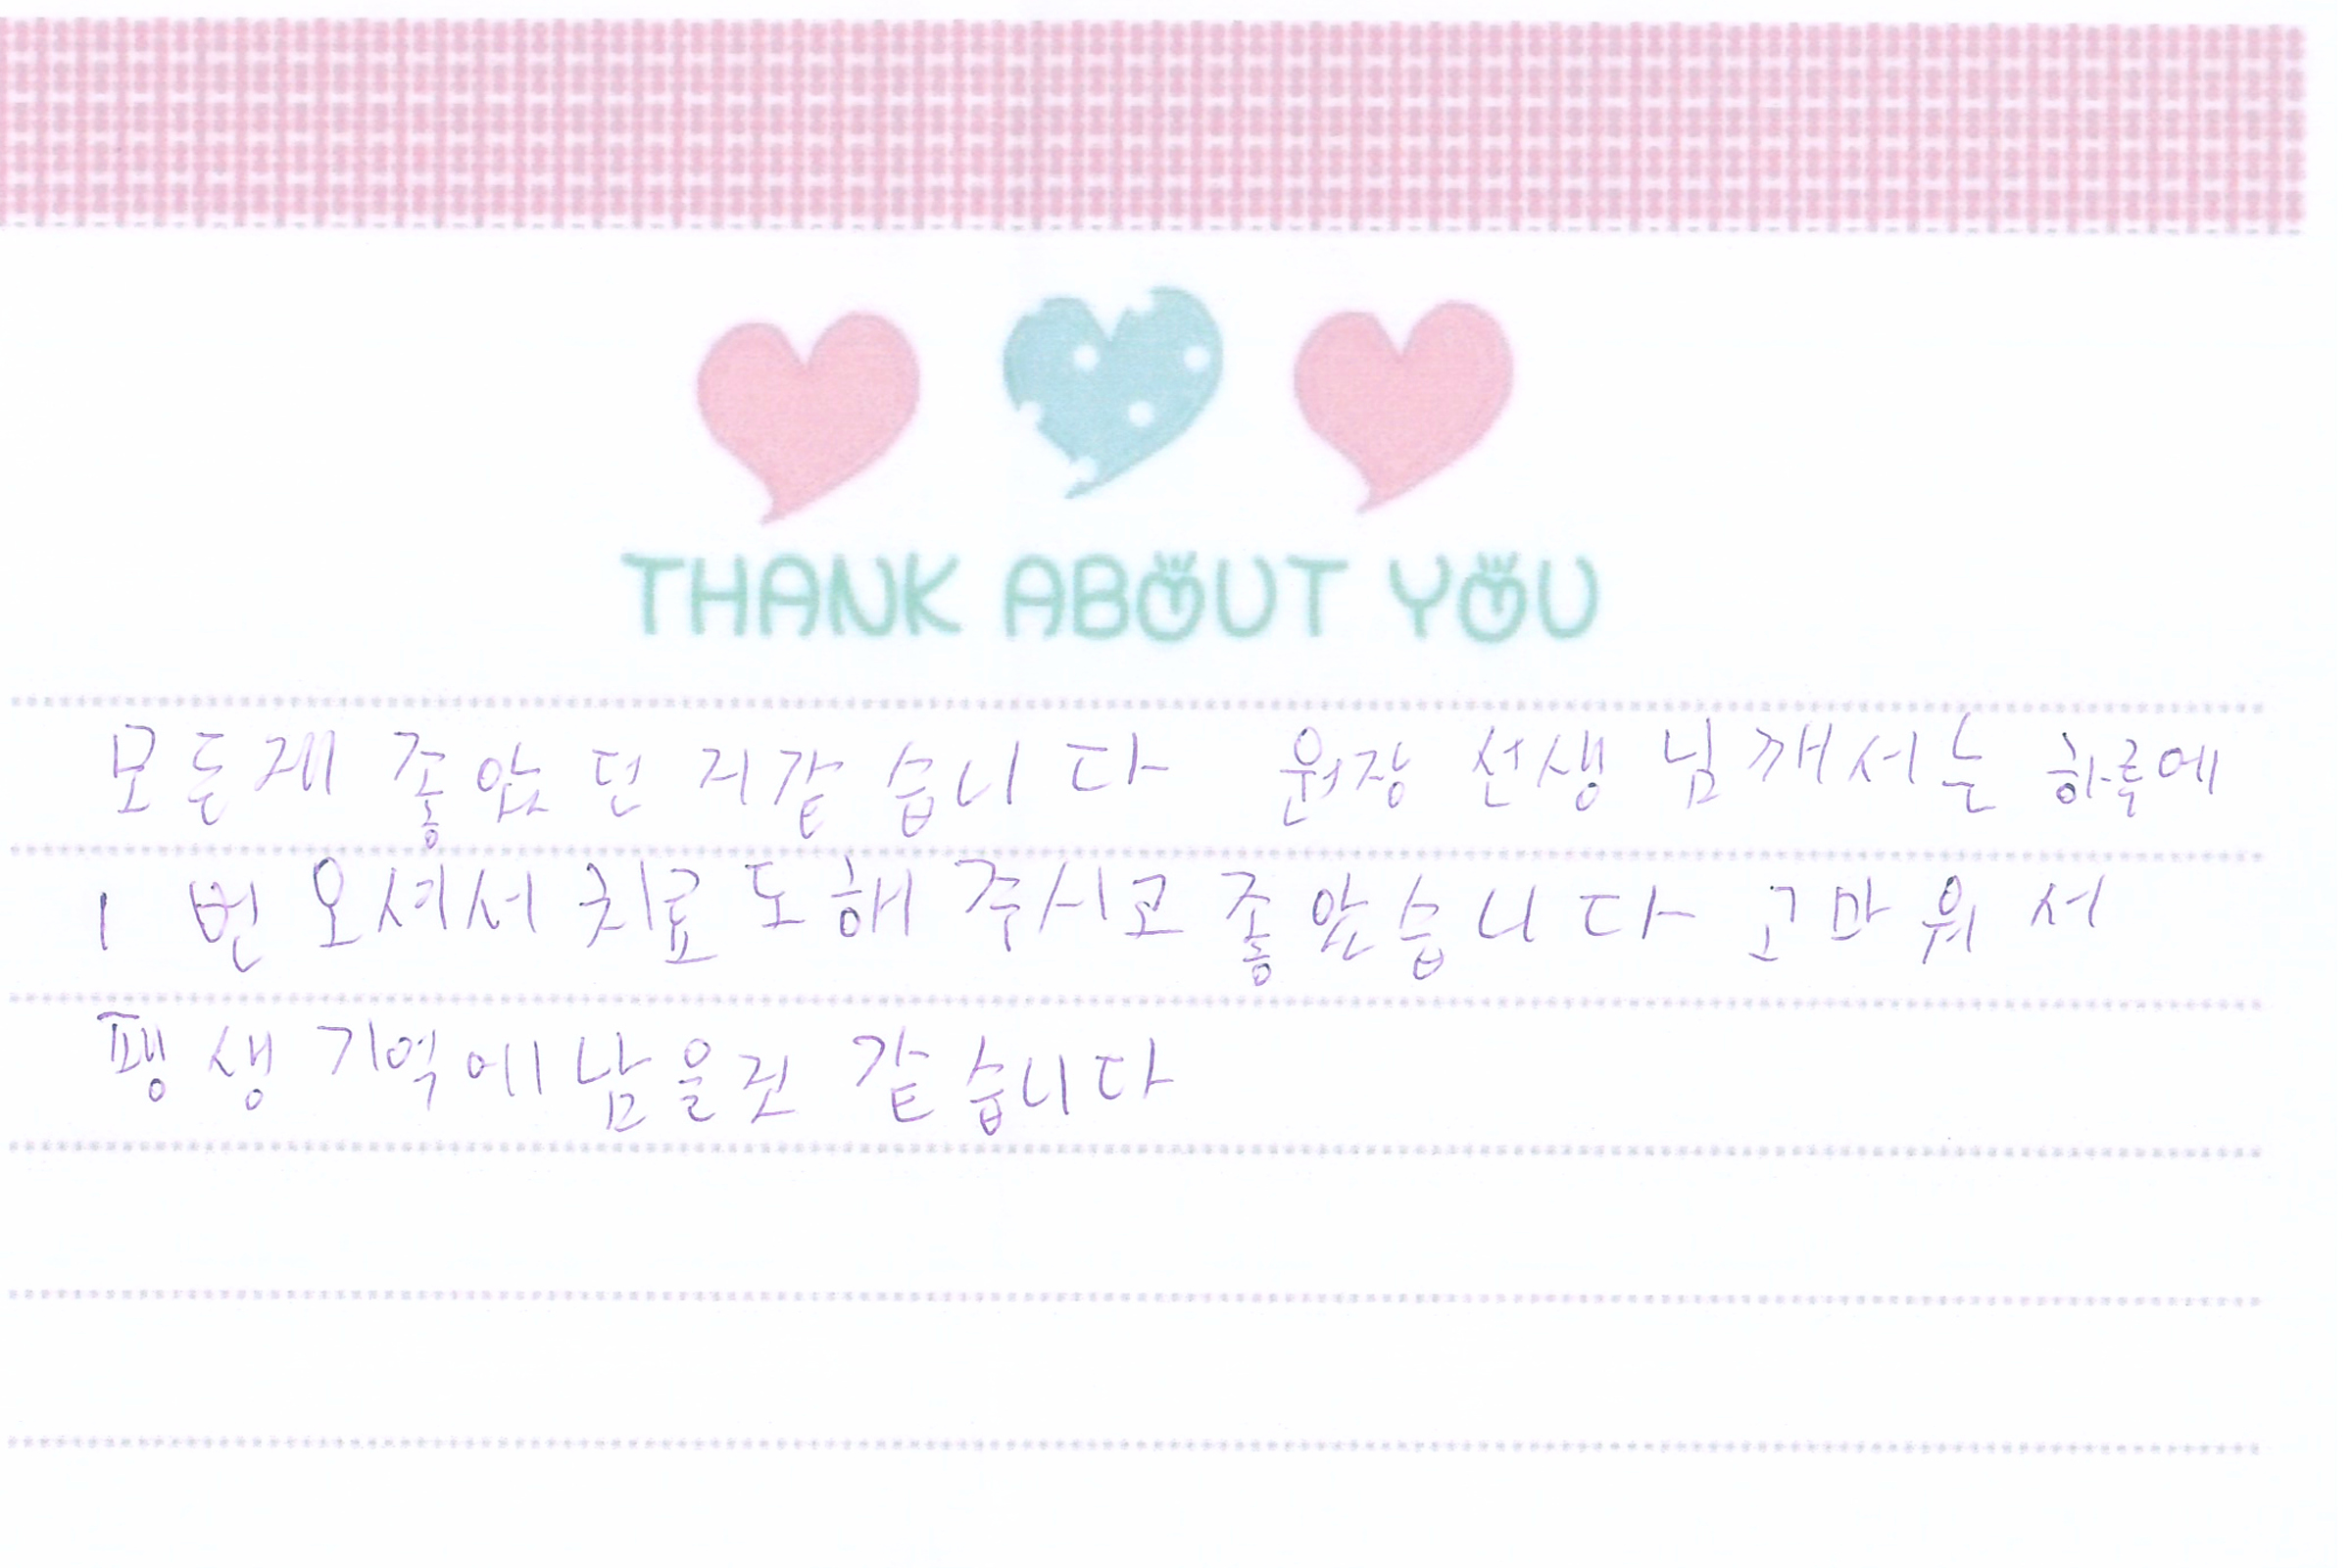 THANK ABOUT YOU
모든게 좋았던 거같습니다 원장 선생님깨서는 하루에
1번 오셔서 치료도해 주시고 좋았습니다 고마워서
평생 기억에남을것 같습니다